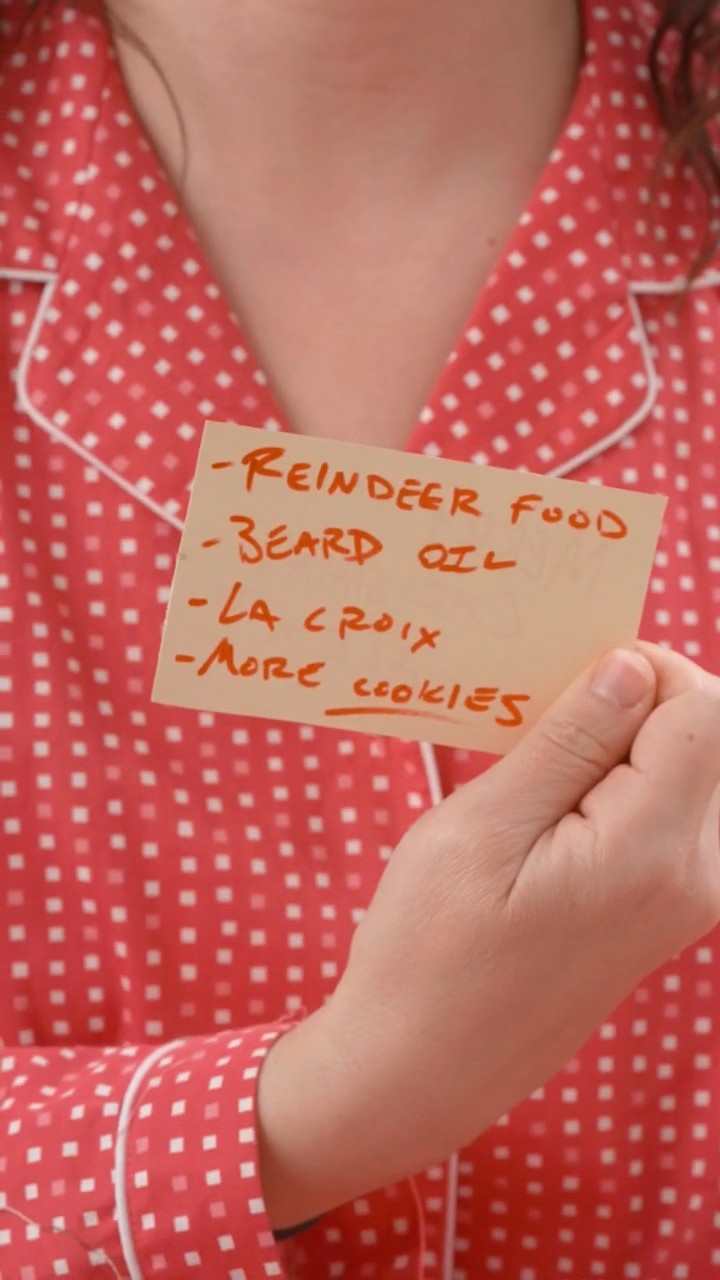 - REINDEER FOOD
- BEARD OIL
- LA CROIX
- MORE COOKIES